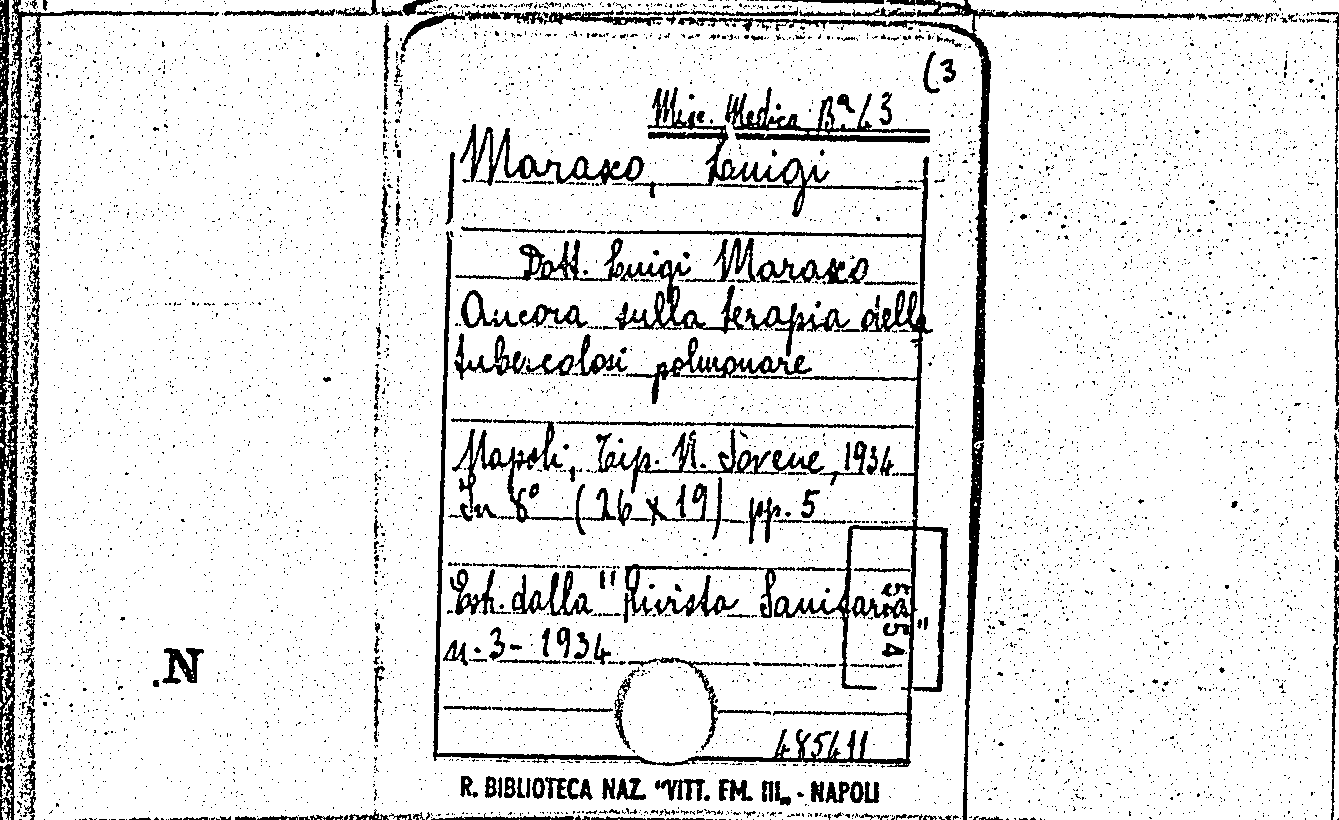 (3
Misc. Medica B.ª 63
Maraxo, Luigi
Dott. Luigi Maraxo
Ancora sulla terapia della
tubercolosi polmonare
Napoli, Tip. N. Jovene, 1934
In 8° (26 x 19) pp. 5
Estr. dalla "Rivista Sanitaria"
n. 3 - 1934
.N
485411
R. BIBLIOTECA NAZ. "VITT. EM. III„ - NAPOLI